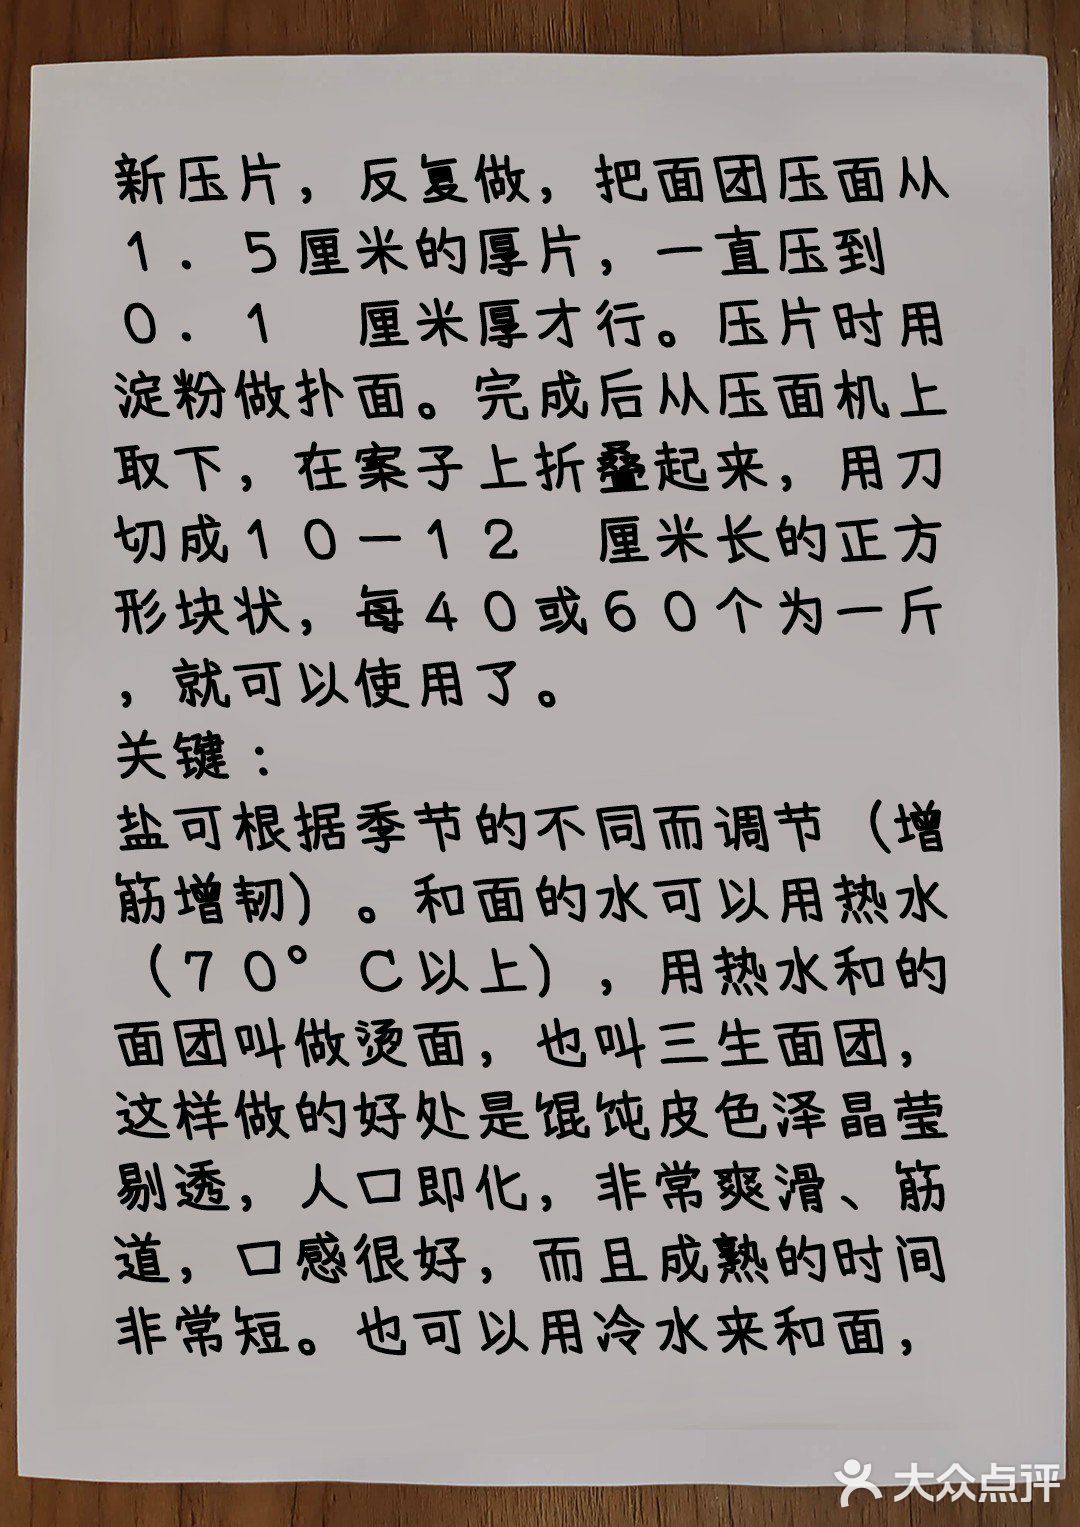 新压片，反复做，把面团压面从
１．５厘米的厚片，一直压到
０．１　厘米厚才行。压片时用
淀粉做扑面。完成后从压面机上
取下，在案子上折叠起来，用刀
切成１０－１２　厘米长的正方
形块状，每４０或６０个为一斤
，就可以使用了。
关键：
盐可根据季节的不同而调节（增
筋增韧）。和面的水可以用热水
（７０°Ｃ以上），用热水和的
面团叫做烫面，也叫三生面团，
这样做的好处是馄饨皮色泽晶莹
剔透，人口即化，非常爽滑、筋
道，口感很好，而且成熟的时间
非常短。也可以用冷水来和面，
大众点评